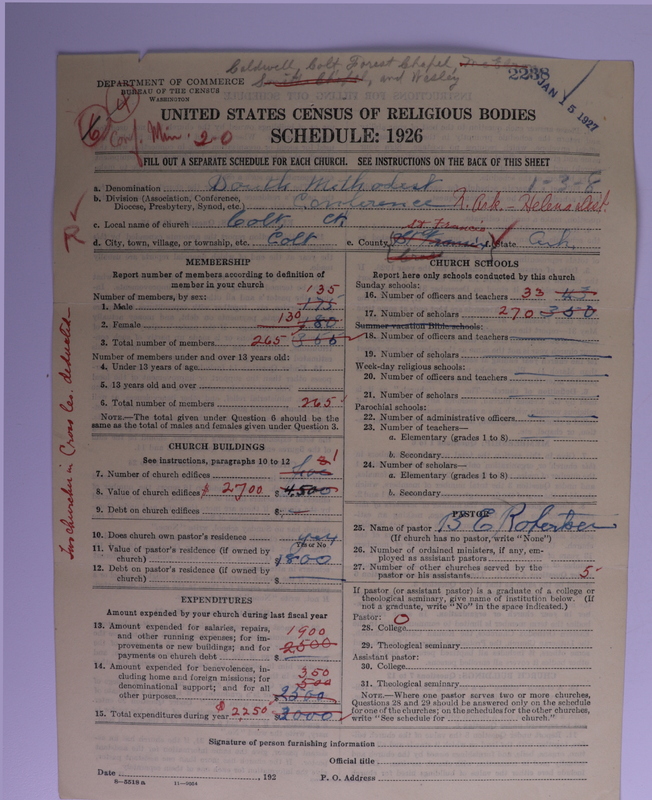 Caldwell, Colt Forest Chapel
Smith Chapel, and Wesley
2238
JAN 15 1927
DEPARTMENT OF COMMERCE
BUREAU OF THE CENSUS
WASHINGTON
Conf. Min. 20
UNITED STATES CENSUS OF RELIGIOUS BODIES
SCHEDULE: 1926
FILL OUT A SEPARATE SCHEDULE FOR EACH CHURCH. SEE INSTRUCTIONS ON THE BACK OF THIS SHEET
a. Denomination South Methodist 1-3-8
b. Division (Association, Conference, Diocese, Presbytery, Synod, etc.) Conference N. Ark. - Helena Dist.
c. Local name of church Colt, Ch
St Francis
d. City, town, village, or township, etc. Colt e. County St Francis f. State Ark.
MEMBERSHIP
Report number of members according to definition of
member in your church
Number of members, by sex:
135
1. Male 175
2. Female 130 180
3. Total number of members 265 355
Number of members under and over 13 years old:
4. Under 13 years of age
5. 13 years old and over
6. Total number of members 265
NOTE.—The total given under Question 6 should be the
same as the total of males and females given under Question 3.
CHURCH BUILDINGS
See instructions, paragraphs 10 to 12
7. Number of church edifices 1
8. Value of church edifices $ 2700 $ 4500
9. Debt on church edifices $
10. Does church own pastor's residence yes
Yes or No
11. Value of pastor's residence (if owned by
church) $ 1800
12. Debt on pastor's residence (if owned by
church) $
EXPENDITURES
Amount expended by your church during last fiscal year
13. Amount expended for salaries, repairs,
and other running expenses; for im-
provements or new buildings; and for
payments on church debt $ 1900 2500
14. Amount expended for benevolences, in-
cluding home and foreign missions; for
denominational support; and for all
other purposes 350 500
15. Total expenditures during year $ 2250 $ 3000
CHURCH SCHOOLS
Report here only schools conducted by this church
Sunday schools:
16. Number of officers and teachers 33 43
17. Number of scholars 270 350
Summer vacation Bible schools:
18. Number of officers and teachers
19. Number of scholars
Week-day religious schools:
20. Number of officers and teachers
21. Number of scholars
Parochial schools:
22. Number of administrative officers
23. Number of teachers—
a. Elementary (grades 1 to 8)
b. Secondary
24. Number of scholars—
a. Elementary (grades 1 to 8)
b. Secondary
PASTOR
25. Name of pastor B E Robertson
(If church has no pastor, write "None")
26. Number of ordained ministers, if any, em-
ployed as assistant pastors
27. Number of other churches served by the
pastor or his assistants 5
If pastor (or assistant pastor) is a graduate of a college or
theological seminary, give name of institution below. (If
not a graduate, write "No" in the space indicated.)
Pastor: O
28. College
29. Theological seminary
Assistant pastor:
30. College
31. Theological seminary
NOTE.—Where one pastor serves two or more churches,
Questions 28 and 29 should be answered only on the schedule
for one of the churches; on the schedules for the other churches,
write "See schedule for church."
Signature of person furnishing information
Official title
Date , 192 P. O. Address
8—5518 a 11—9054
churches in Cross Co. deducted